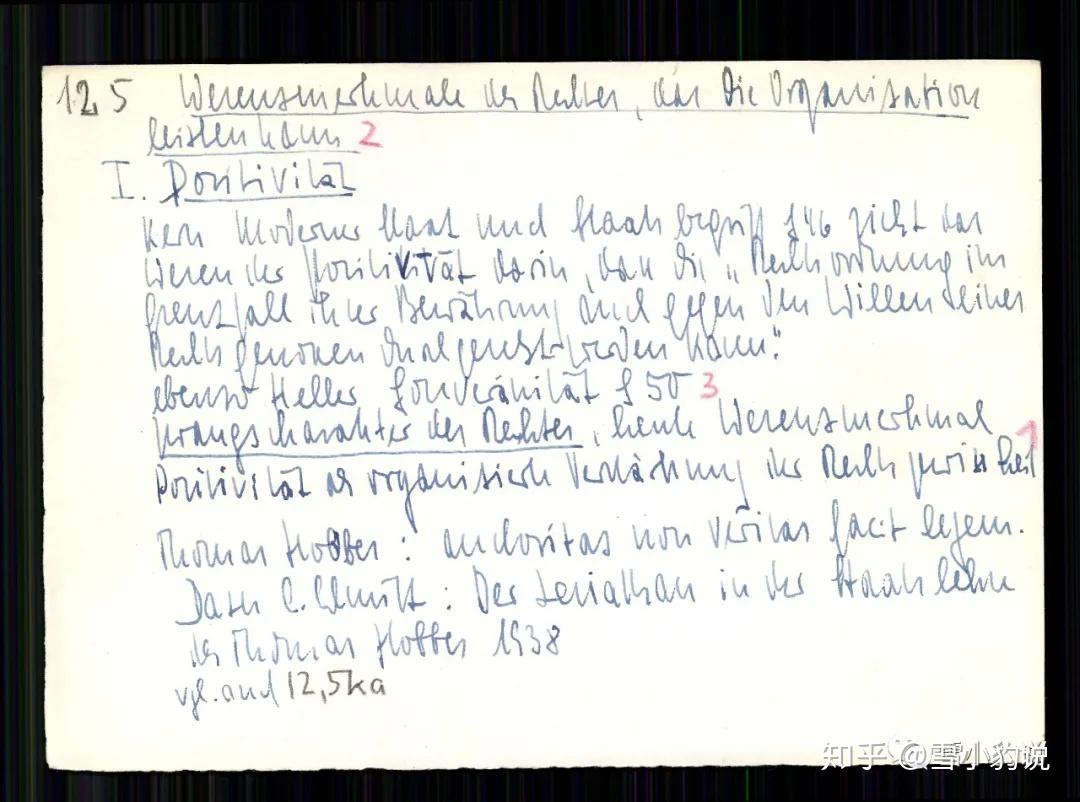 12,5 Wesensmerkmale des Rechtes, das die Organisation
leisten kann 2
I. Positivität
Kern Moderner Staat und Staatsbegriff § 46 sieht das
Wesen der Positivität darin, dass die „Rechtsordnung im
Grenzfall ihrer Bewährung auch gegen den Willen seiner
Rechtsgenossen durchgesetzt werden kann."
ebenso Heller Souveränität S 50 3
Zwangscharakter des Rechtes, heute Wesensmerkmal 1
Positivität als organisierte Verstärkung der
Thomas Hobbes: auctoritas non veritas facit legem.
Dazu C. Schmitt: Der Leviathan in der Staatslehre
des Thomas Hobbes 1938
vgl. auch 12,5ka
知乎 @雪小豹说